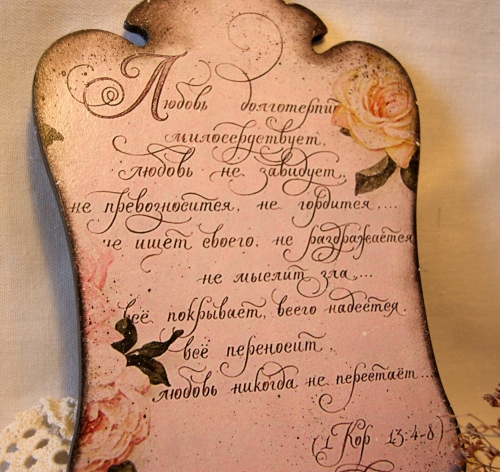 Любовь долготерпит
милосердствует,
любовь не завидует,
не превозносится, не гордится,...
не ищет своего, не раздражается
не мыслит зла...
всё покрывает, всего надеется,
всё переносит,
любовь никогда не перестаёт...
(1 Кор 13:4-8)